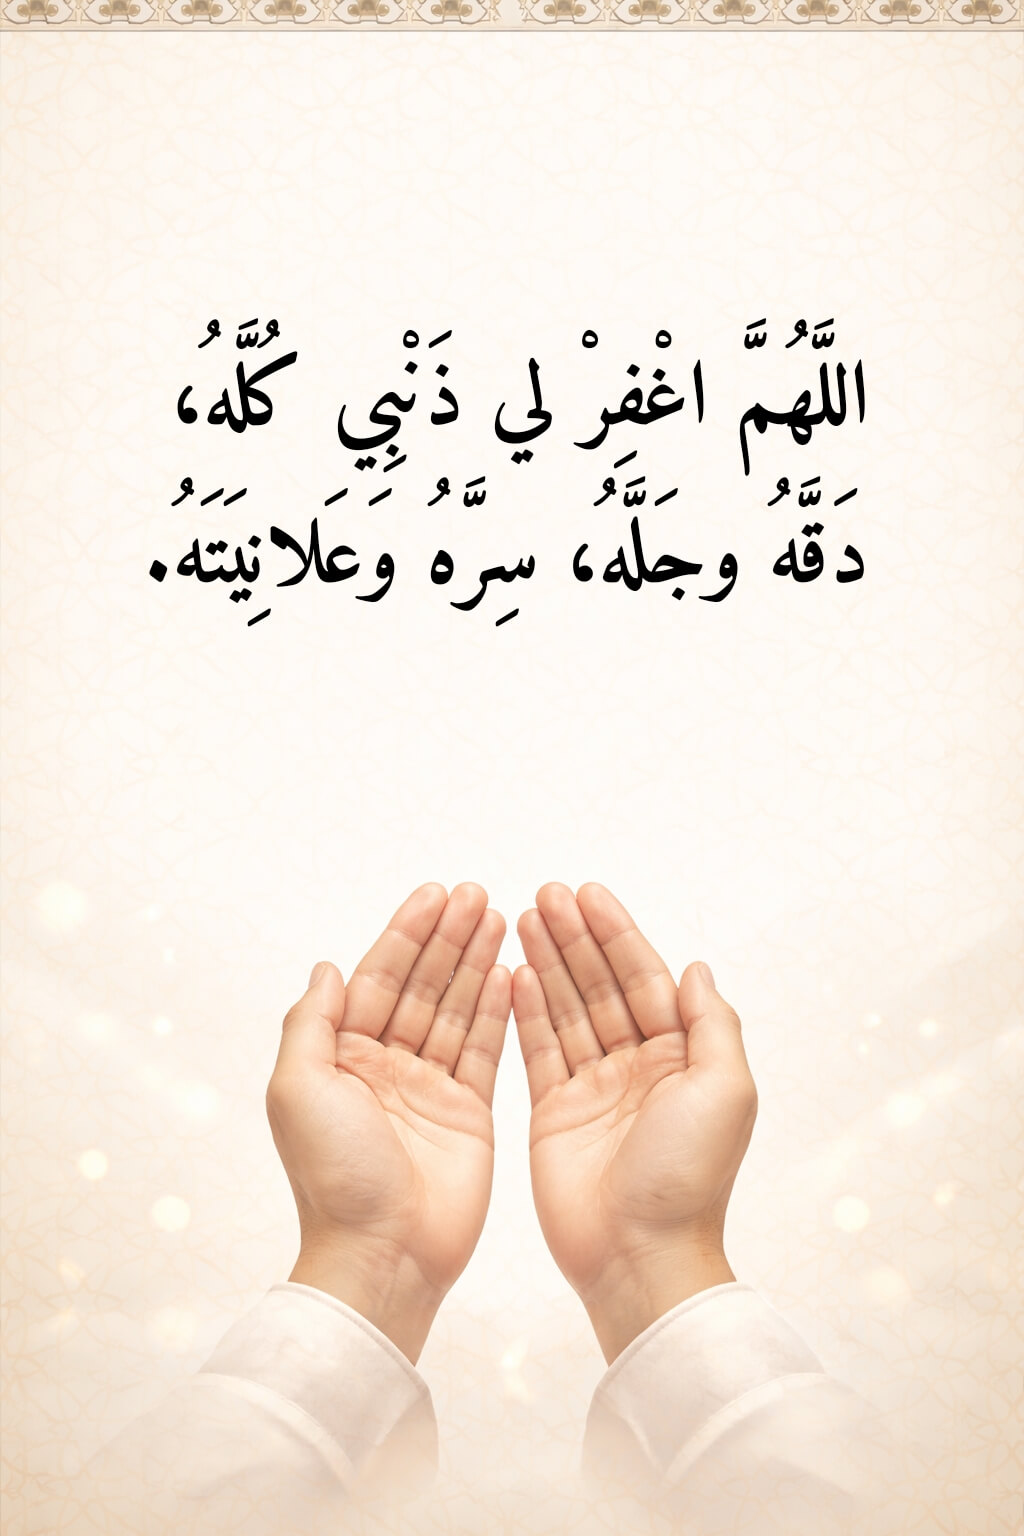 اللَّهُمَّ اغْفِرْ لي ذَنْبِي كُلَّهُ،
دَقَّهُ وجَلَّهُ، سِرَّهُ وَعَلَانِيَتَهُ.